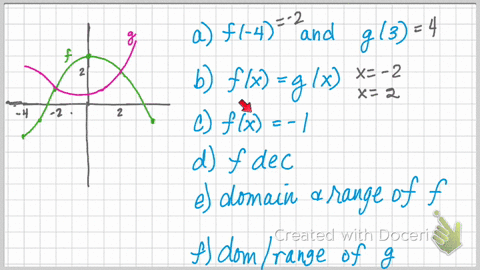 g
f
2
-4 -2 2
a) f(-4) = -2 and g(3) = 4
b) f(x) = g(x) x = -2
x = 2
c) f(x) = -1
d) f dec
e) domain & range of f
Created with Doceri
f) dom/range of g